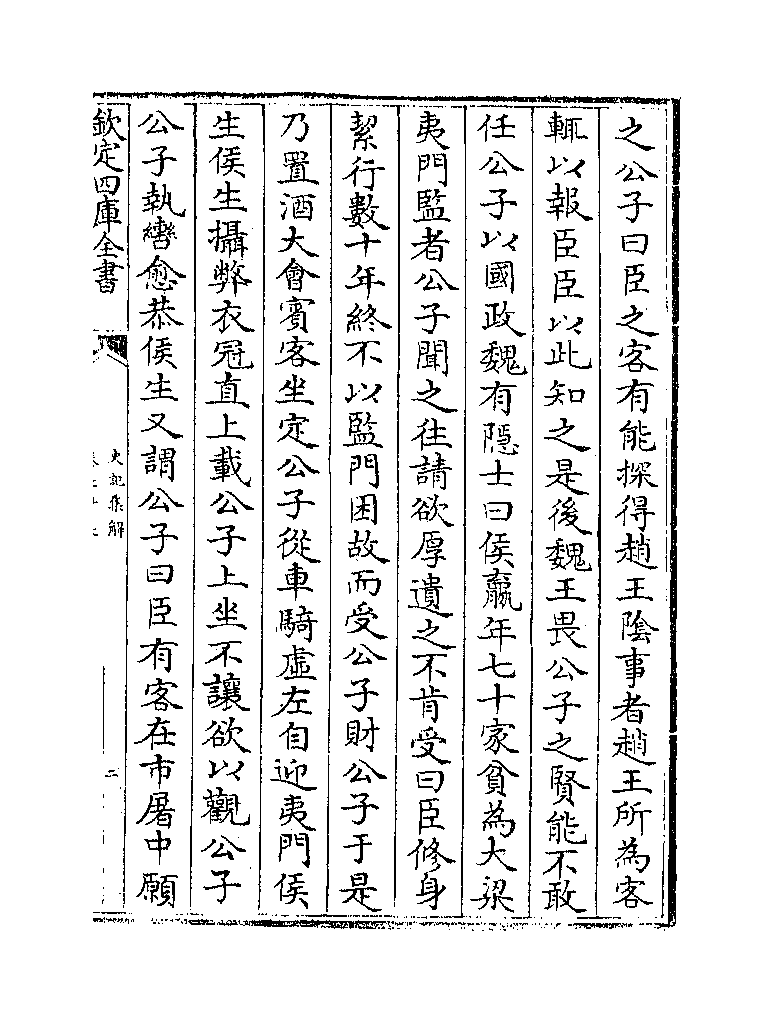 之公子曰臣之客有能探得趙王隂事者趙王所為客
輒以報臣臣以此知之是後魏王畏公子之賢能不敢
任公子以國政魏有隠士曰侯嬴年七十家貧為大梁
夷門監者公子聞之往請欲厚遺之不肯受曰臣修身
絜行數十年終不以監門困故而受公子財公子于是
乃置酒大會賓客坐定公子從車騎虛左自迎夷門侯
生侯生攝弊衣冠直上載公子上坐不讓欲以觀公子
公子執轡愈恭侯生又謂公子曰臣有客在市屠中願
欽定四庫全書
史記集解
二